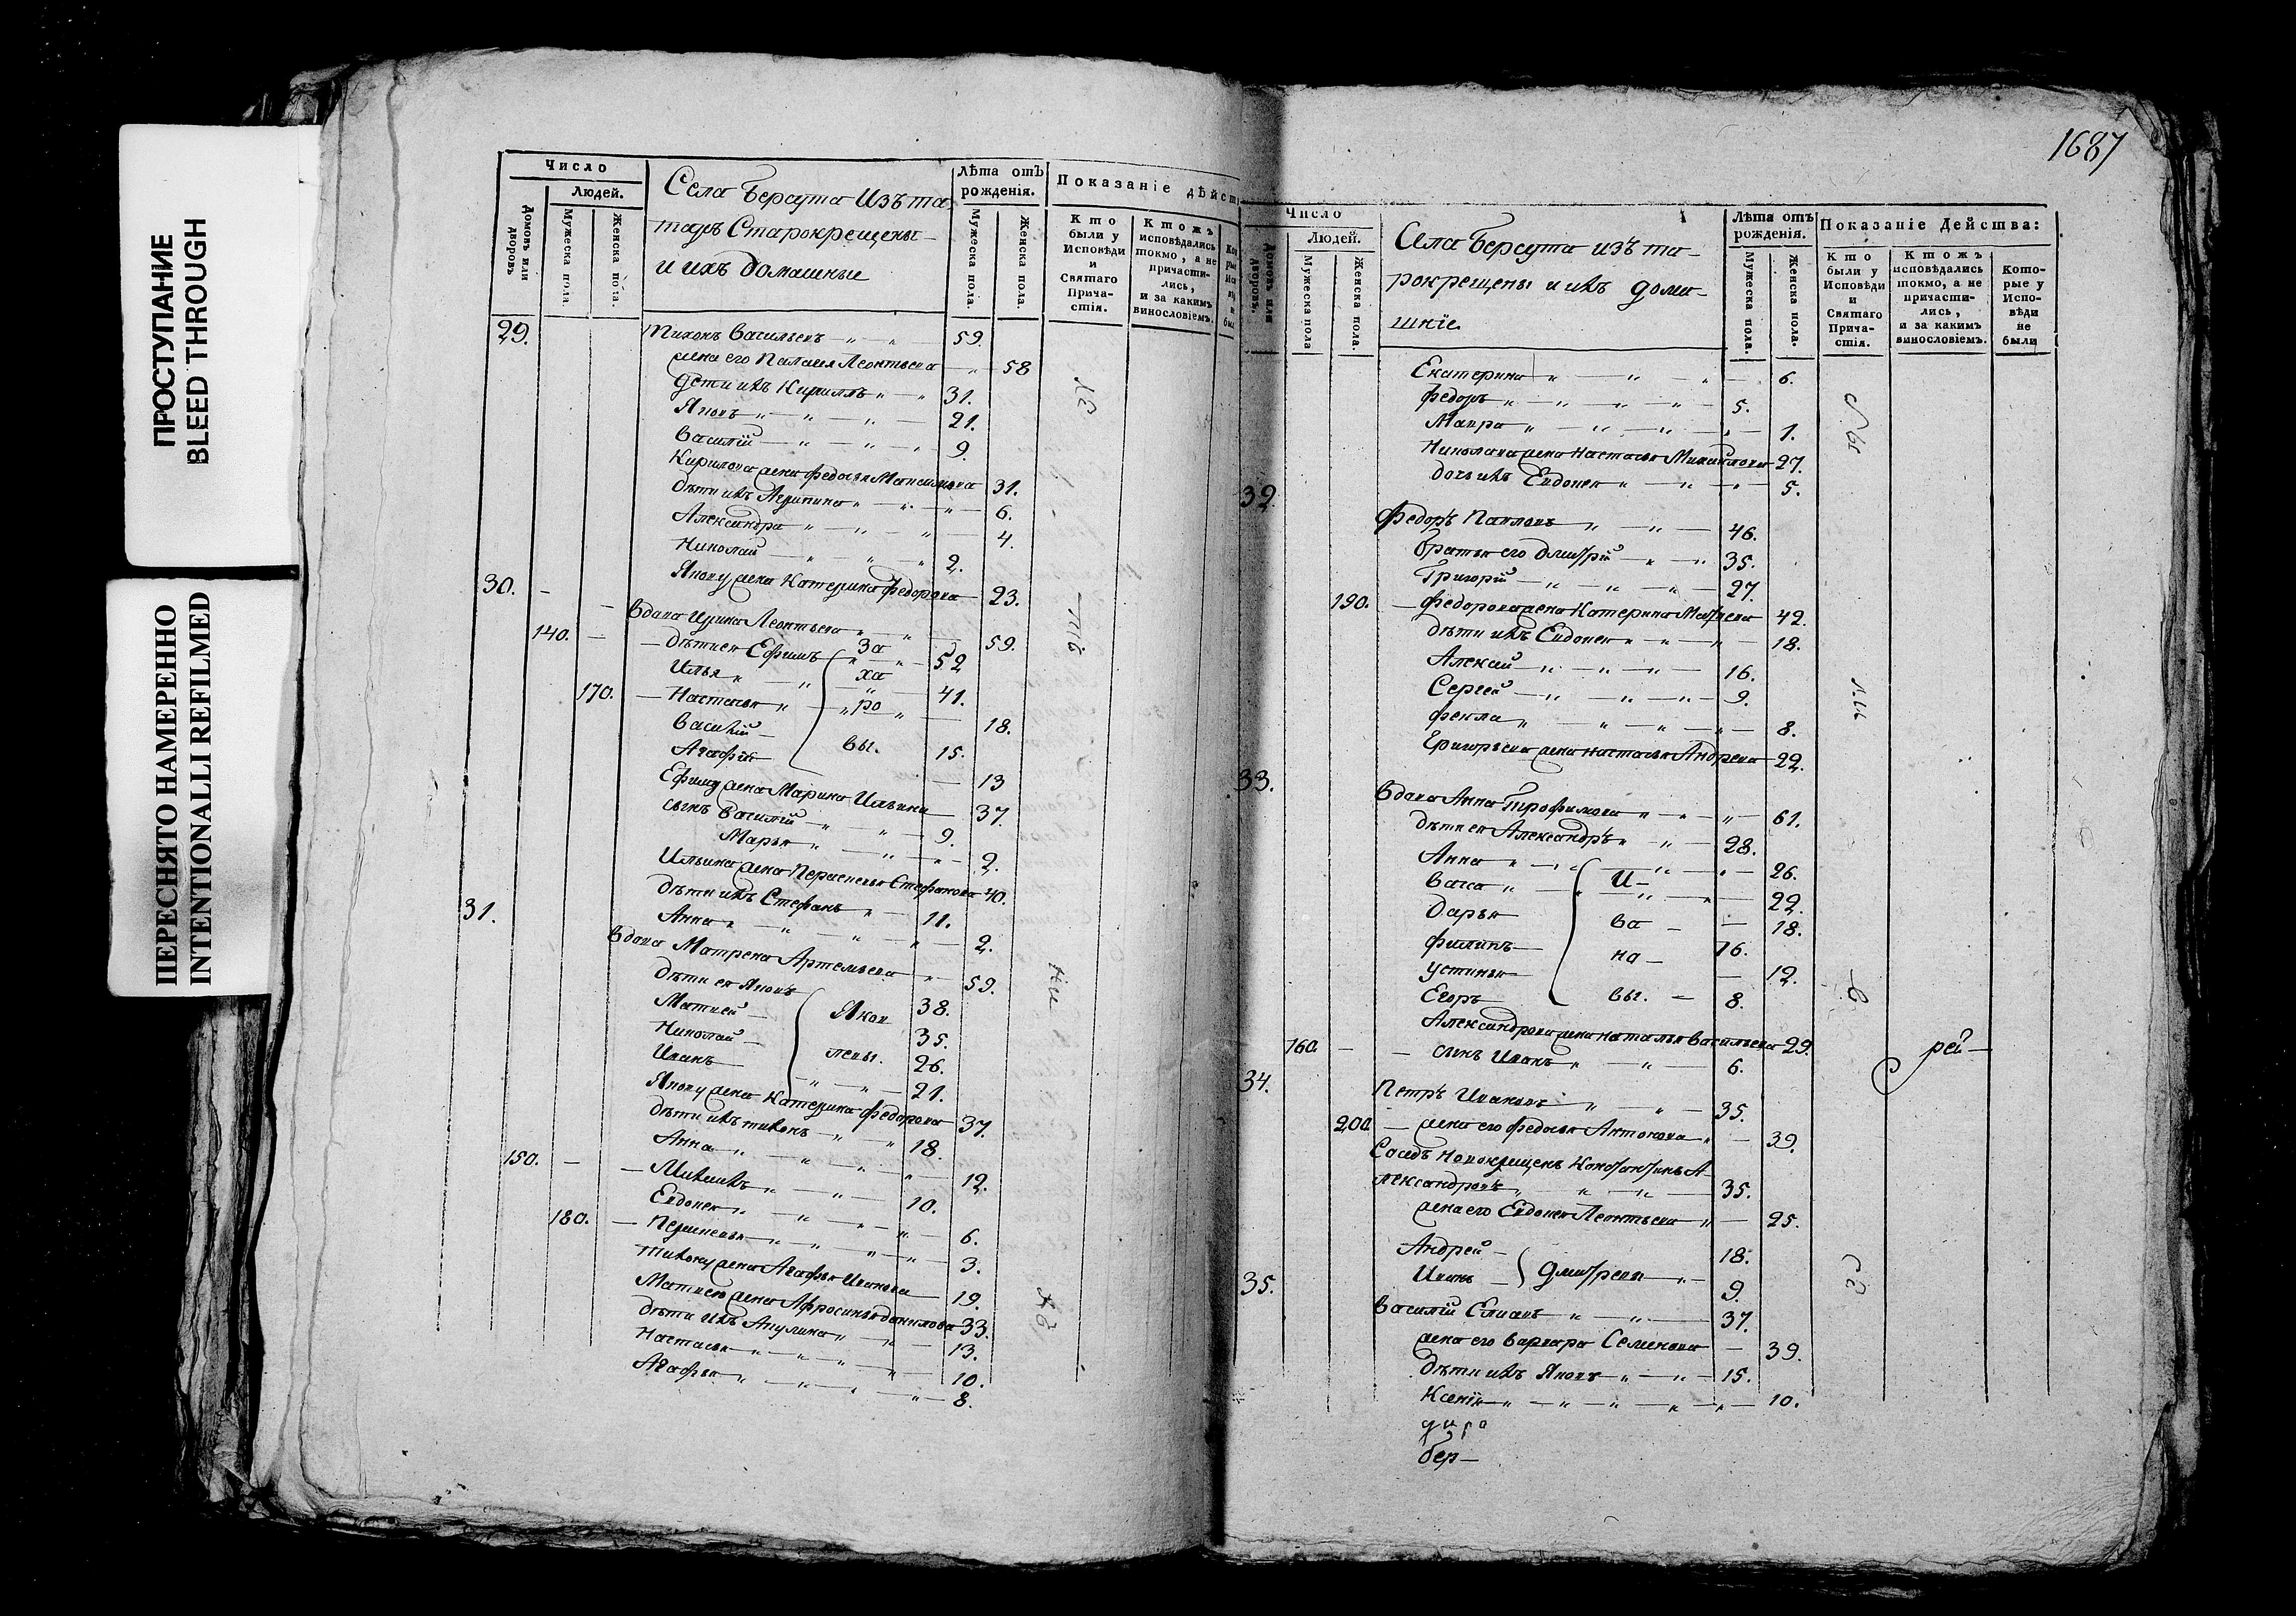 ПРОСТУПАНИЕ
BLEED THROUGH
ПЕРЕСНЯТО НАМЕРЕННО
INTENTIONALLI REFILMED
Число
Людей.
Домовъ или дворовъ
Мужеска пола.
Женска пола.
Села Берсута Изъ та
таръ Старокрещены
и ихъ домашные
Лѣта отъ рожденія.
Мужеска пола.
Женска пола.
Показаніе дѣйст
Кто были у Исповѣди и Святаго Причастія.
Ктожъ исповѣдались токмо, а не причастились, и за какимъ винословіемъ.
29. Тихонъ Васильевъ 59.
жена его Палагея Леонтьева 58
дети ихъ Кириллъ 31.
Яковъ 21.
Василій 9.
Кирилова жена Федосья Максимова 31.
дѣти ихъ Агрипина 6.
Александра 4.
Николай 2.
Якову жена Катерина Федорова 23.
30. Вдова Ирина Леонтьева 59.
140. дѣти ея Ефимъ 52
Илья 41.
170. Настасья 18.
Василій 15.
Агафія 13
За
ха
ро
вы.
Ефиму жена Марина Ильина 37.
сынъ Василій 9.
Марья 2.
Ильина жена Парасковья Стефанова 40.
дѣти ихъ Стефанъ 11.
Анна 2.
31. Вдова Матрена Артемьева 59.
дѣти ея Яковъ 38.
Матвей 35.
Николай 26.
Иванъ 21.
Яков
левы.
Якову жена Катерина Федорова 37.
дѣти ихъ Тихонъ 18.
Анна 12.
150. Михаилъ 10.
Евдокея 6.
180. 3.
Тихону жена Агафья Иванова 19.
Матвею жена Афросинья Данилова 33.
дѣти ихъ Акулина 13.
Настасья 10.
Агафья 8.
1687
Число
Людей.
Домовъ или дворовъ.
Мужеска пола
Женска пола.
Села Берсута изъ та
рокрещены и ихъ дома
шніе
Лѣта отъ рожденія.
Мужеска пола.
Женска пола.
Показаніе Действа:
Кто были у Исповѣди и Святаго Причастія.
Ктожъ исповѣдались токмо, а не причастились, и за какимъ винословіемъ.
Которые у Исповѣди не были
Екатерина 6.
Федоръ 5.
Мавра 1.
Николаева жена Настасья Михайлова 27.
дочь ихъ Евдокея 5.
32. Федоръ Павловъ 46.
братья его Дмитрій 35.
Григорій 27.
190. Федорова жена Катерина Матвева 42.
дѣти ихъ Евдокея 18.
Алексей 16.
Сергей 9.
Фекла 8.
Григорьева жена Настасья Андреева 22.
33. Вдова Анна Трофимова 61.
дѣти ея Александръ 28.
Анна 26.
Васа 22.
Дарья 18.
Филипъ 16.
Устинья 12.
Егоръ 8.
И
ва
но
вы.
Александрова жена Наталья Васильева 29.
160. сынъ Иванъ 6.
рей
34. Петръ Ивановъ 35.
200. жена его Федосья Антонова 39.
Соседъ новокрещенъ Константинъ А
лександровъ 35.
жена его Евдокея Леонтьева 25.
Андрей 18.
Иванъ Дмитреевы 9.
35. Василій 37.
жена его Варвара Семенова 39.
дѣти ихъ Яковъ 15.
Ксенія 10.
бер